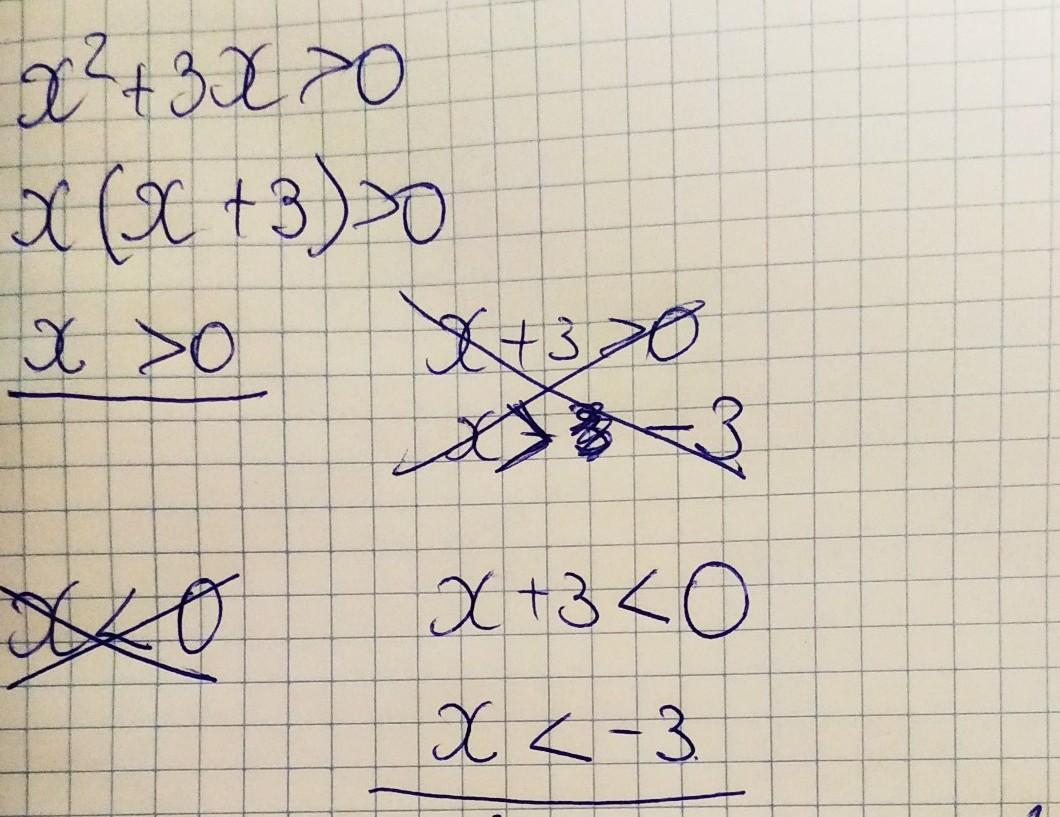 x² + 3x > 0
x (x + 3) > 0
x > 0
x + 3 > 0
x > -3
x < 0
x + 3 < 0
x < -3